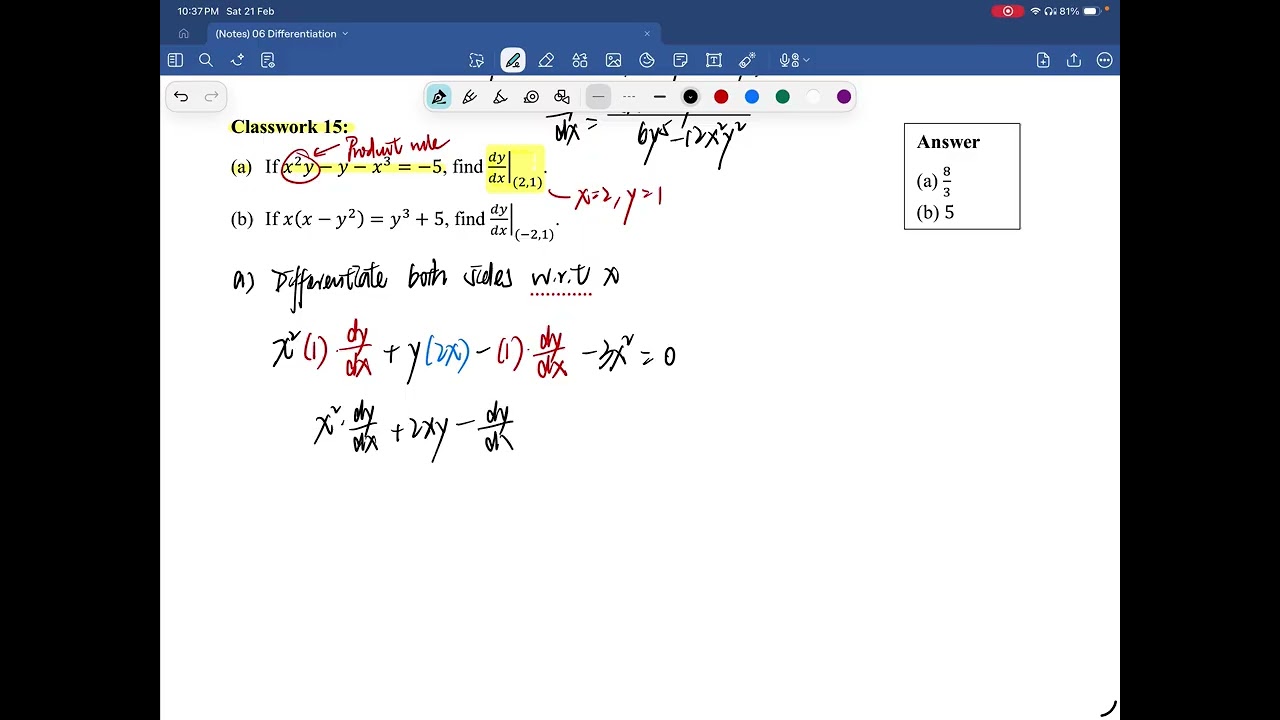 10:37PM Sat 21 Feb
81%
(Notes) 06 Differentiation
dy/dx = 6y⁵ - 12x²y²
Classwork 15:
Product rule
(a) If x²y − y − x³ = −5, find dy/dx|(2,1).
x=2, y=1
(b) If x(x − y²) = y³ + 5, find dy/dx|(−2,1).
Answer
(a) 8/3
(b) 5
a) Differentiate both sides w.r.t x
x² (1) · dy/dx + y (2x) − (1) · dy/dx − 3x² = 0
x² · dy/dx + 2xy − dy/dx